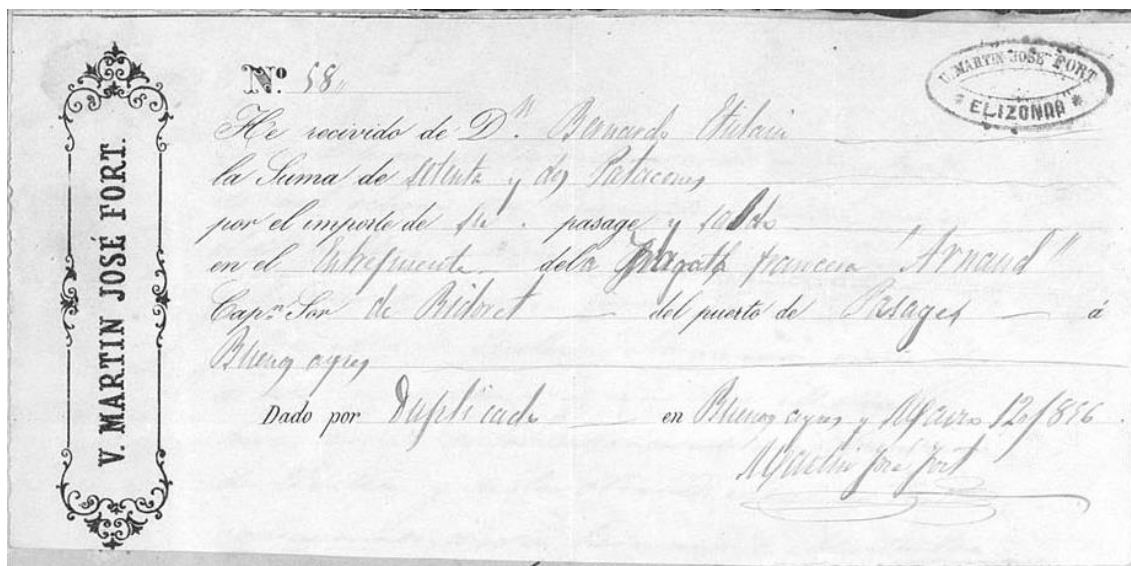 V. MARTIN JOSÉ FORT.
V. MARTIN JOSÉ FORT
* ELIZONDO *
Nº 58
He recivido de Dⁿ. Bernardo
la Suma de setenta y dos Patacones
por el importe de su pasage y
en el Entrepuente dela Fragata francesa "Arnaud"
Capⁿ. Sor de Bidoret del puerto de Pasages á
Buenos ayres
Dado por Duplicado en Buenos ayres y Marzo 12/856
Martin José Fort